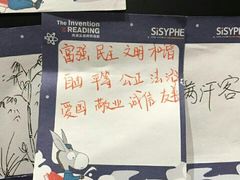 The Invention
of READING
SiSYPHE
SiSYPHE
富强 民主 文明 和谐
自由 平等 公正 法治
爱国 敬业 诚信 友善
满汗客